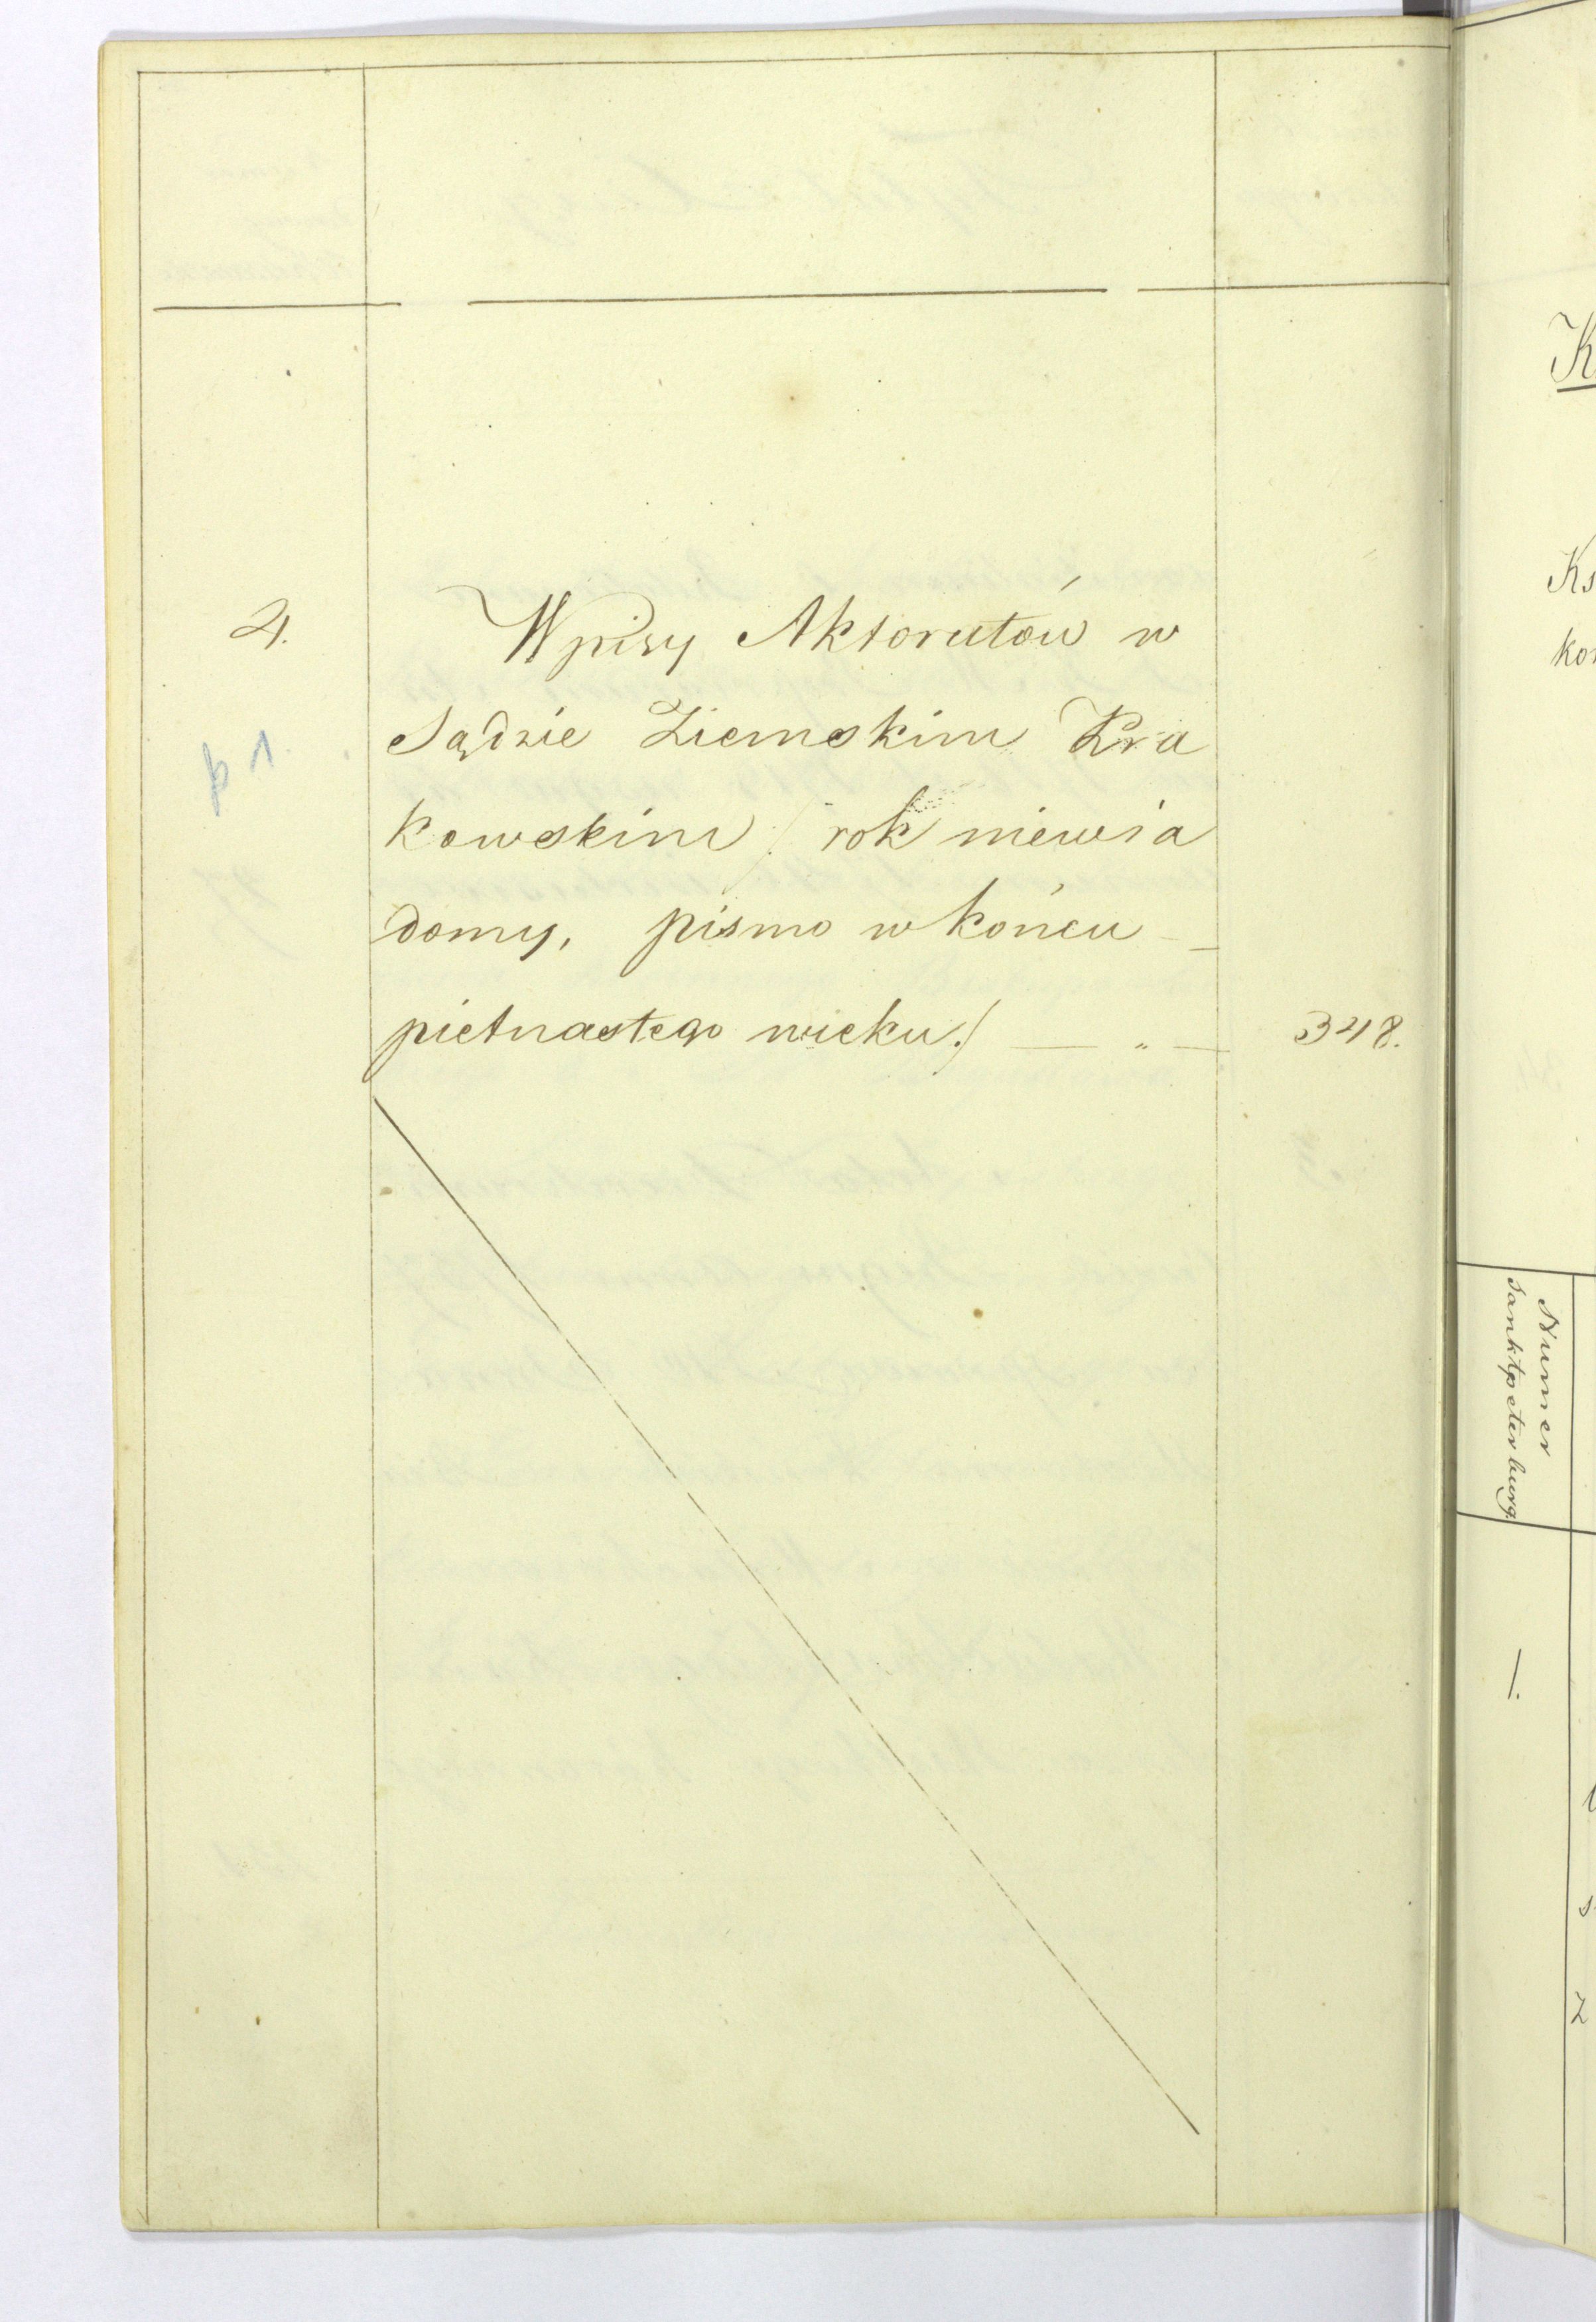 4. Wpisy Aktoratów w
p 1 Sądzie Ziemskim Kra
kowskim /: rok niewia
domy, pismo w końcu —
pietnastego wieku./ — „ — 348.
K
Ks
kor
Numer
Sanktpeterburg.
1.